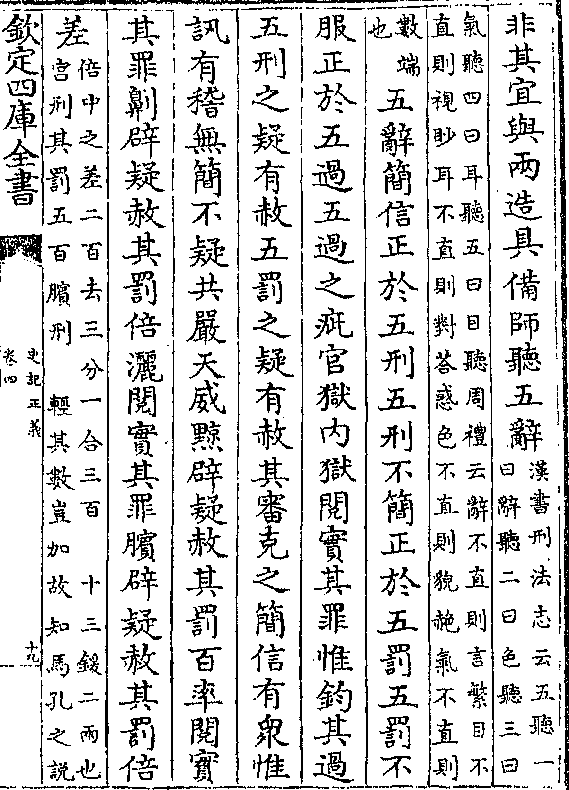 非其宜與兩造具備師聽五辭漢書刑法志云五聽一
曰辭聽二曰色聽三曰
氣聽四曰耳聽五曰目聽周禮云辭不直則言繁目不
直則視眇耳不直則對答惑色不直則貌赧氣不直則
數端
也五辭簡信正於五刑五刑不簡正於五罰五罰不
服正於五過五過之疵官獄內獄閱實其罪惟鈞其過
五刑之疑有赦五罰之疑有赦其審克之簡信有衆惟
訊有稽無簡不疑共嚴天威黥辟疑赦其罰百率閱實
其罪劓辟疑赦其罰倍灑閱實其罪臏辟疑赦其罰倍
差倍中之差二百去三分一合三百 十三鍰二兩也
宮刑其罰五百臏刑 輕其數豈加故知馬孔之説
欽定四庫全書
史記正義
卷四
十九